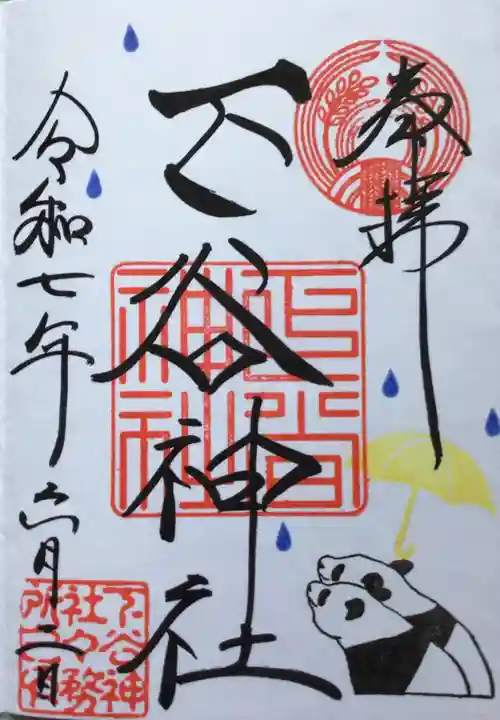 奉拝
下谷神社
令和七年六月二日
下谷神
社々務
所之印